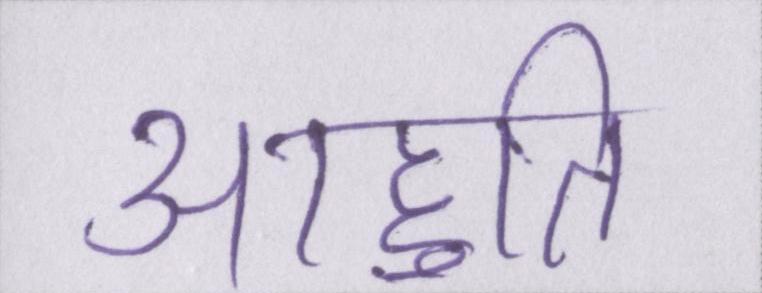 आहुति